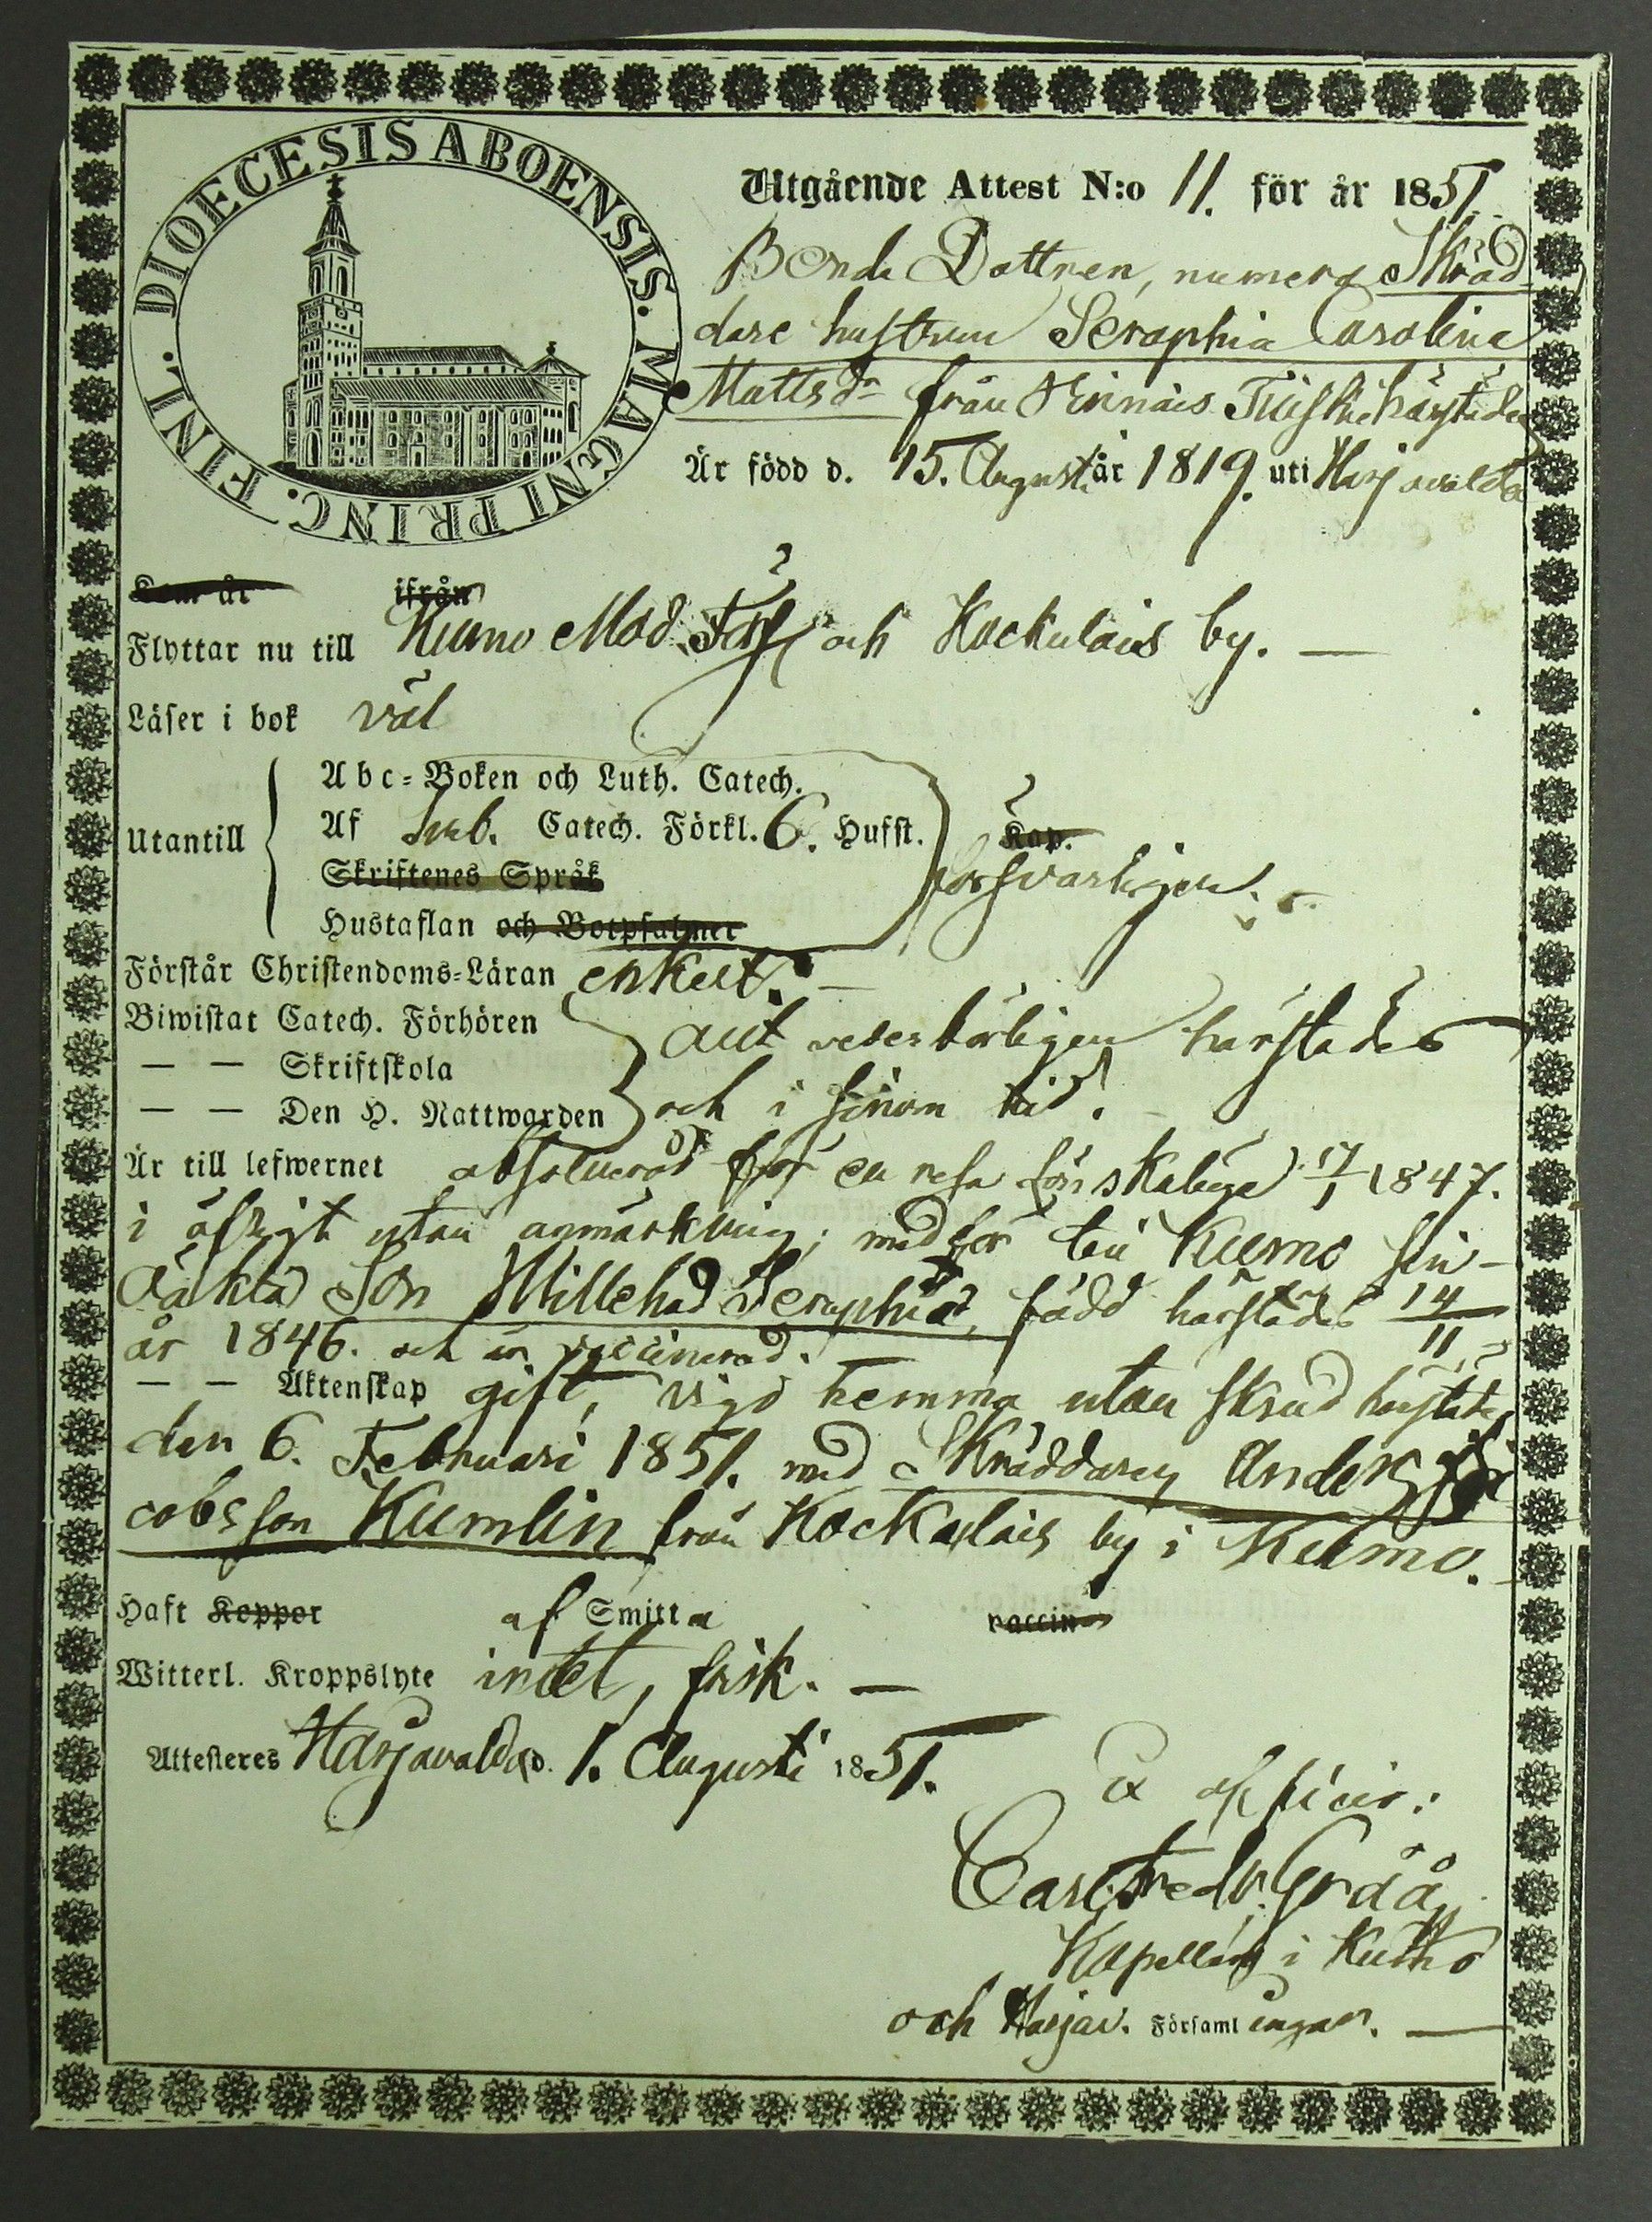 DIOECESIS ABOENSIS. MAGNI PRINC. FINL.
Utgående Attest N:o 11. för år 1851.
Bonde Dottren, numera Skräd-
dare hustrun Seraphia Carolina
Mattsdr från Hinnais härstädes
Är född d. 15. Augusti år 1819. uti Harjavalda
Kom år ifrån
Flyttar nu till Kumo Mod. Förs. och Kockulais by. —
Läser i bok väl
Abc-Boken och Luth. Catech.
Utantill
Af Sveb. Catech. Förkl. 6. Hufst. Kap.
Skriftenes Språk försvarligen.
Hustaflan och Botpsalmer
Förstår Christendoms-Läran enkelt. —
Biwistat Catech. Förhören
— — Skriftskola
allt vederbörligen härstädes
— — Den H. Nattwarden och i sinom tid.
Är till lefwernet absolverad för en resa lönskaläge 17/1 1847.
i öfrigt utan anmärkning; medför till Kumo sin
oäkta Son Willehad Seraphia, född härstädes 14/11
år 1846. och är vaccinerad.
— — Äktenskap gift, vigd hemma utan skrud härstädes
den 6. Februari 1851. med Skräddaren Anders Ja-
cobsson Kumlin från Kockulais by i Kumo.
Haft Koppor af Smitta vaccin
Witterl. Kroppslyte intet, frisk. —
Attesteres Harjavalda d. 1. Augusti 1851.
Ex officio:
Carl Fredr. Gråå
Kapellan i Kumo
och Harjav. Församlingar. —